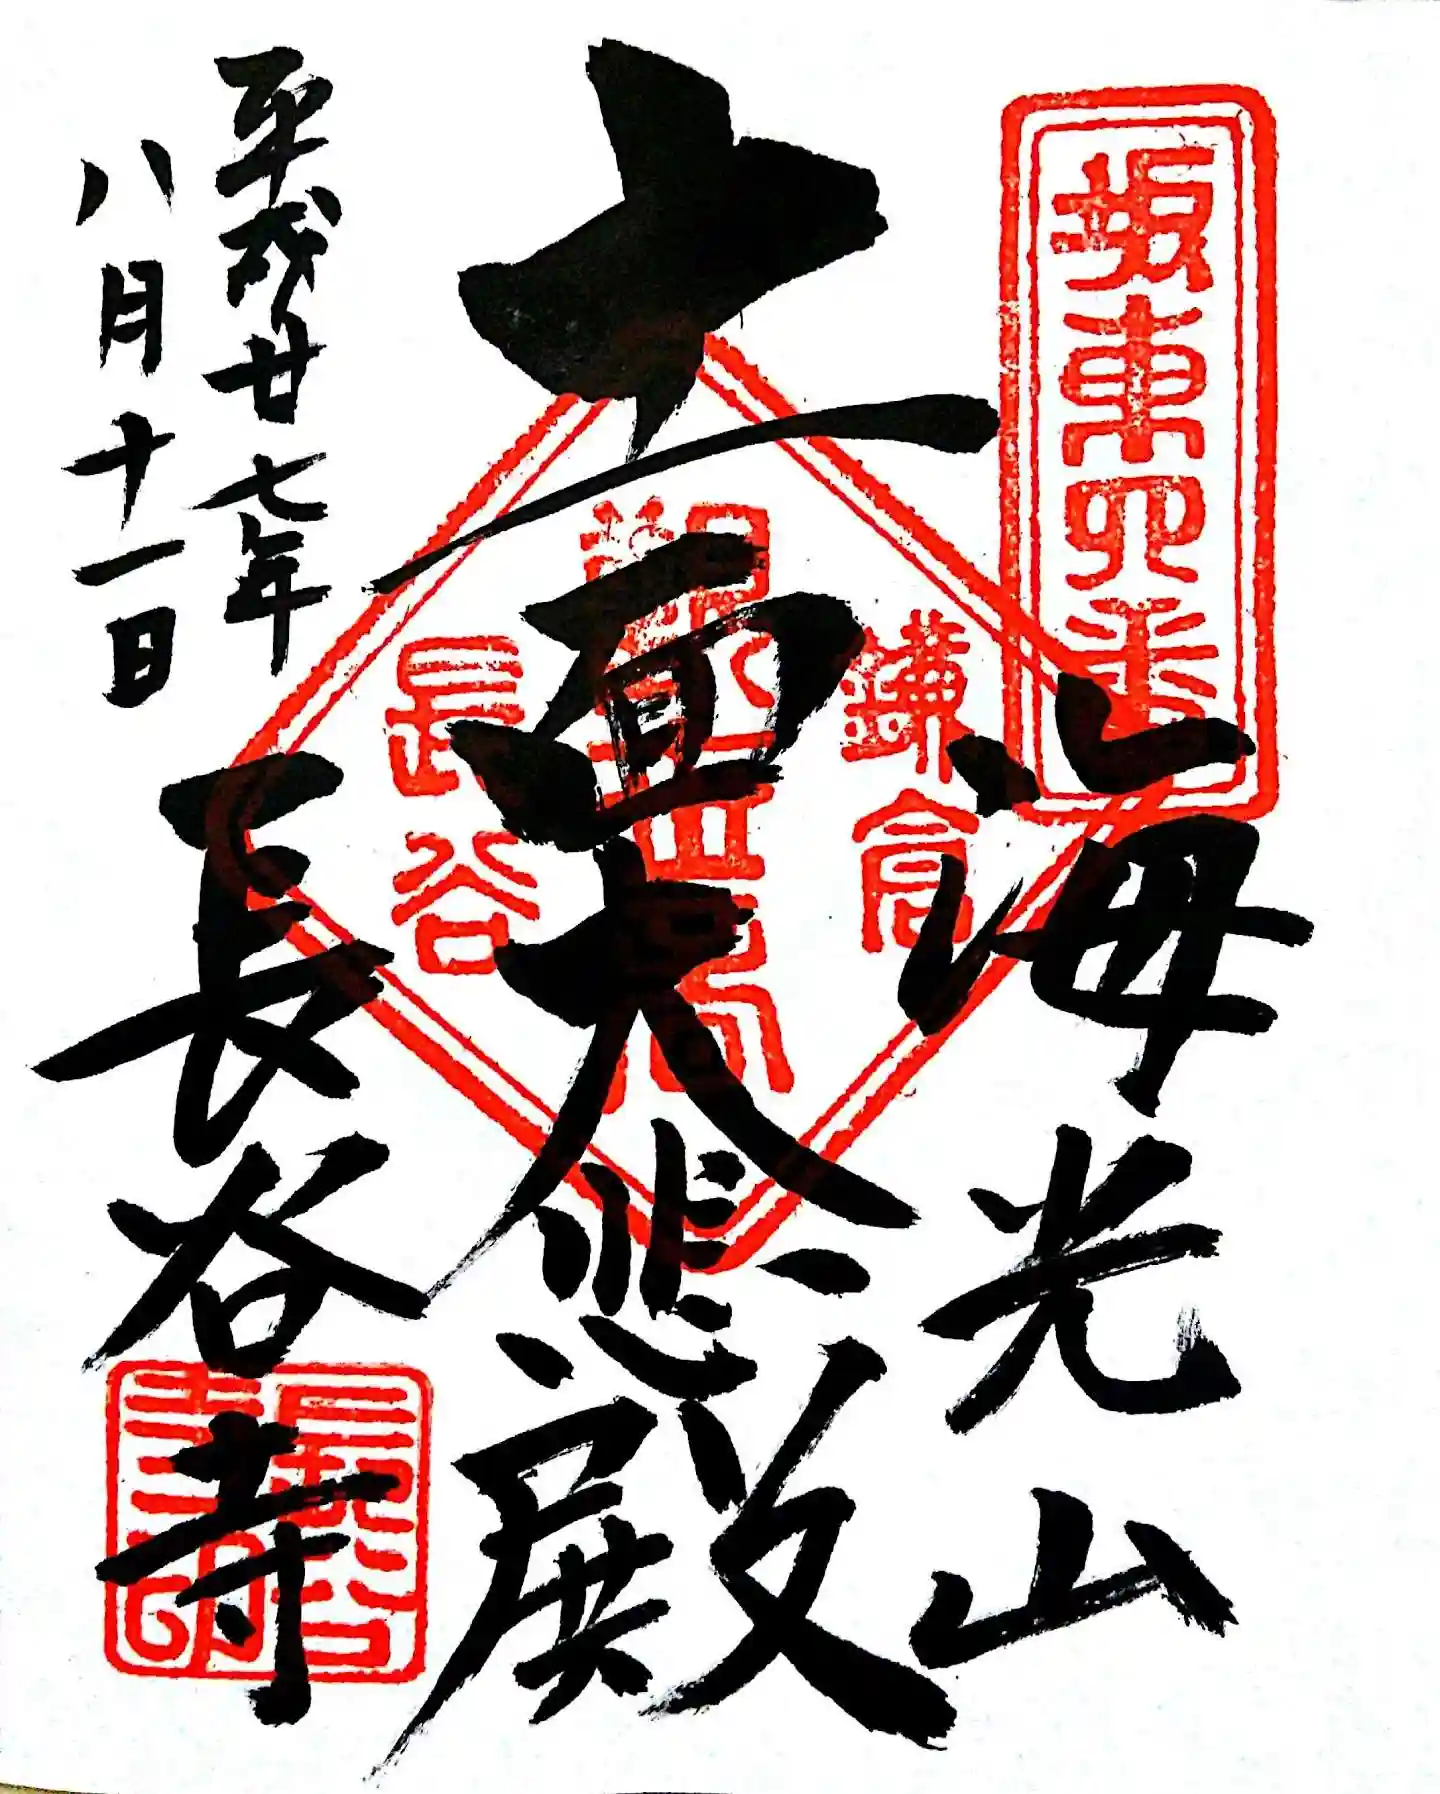 坂東四番
海光山
十一面大悲殿
鎌倉
長谷
平成廿七年
八月十一日
長谷寺
長谷寺印